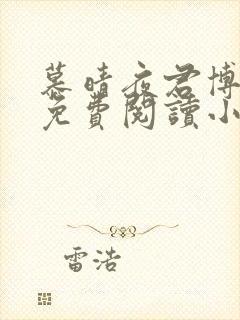 慕晴夜君博
免費閱讀小
雷浩